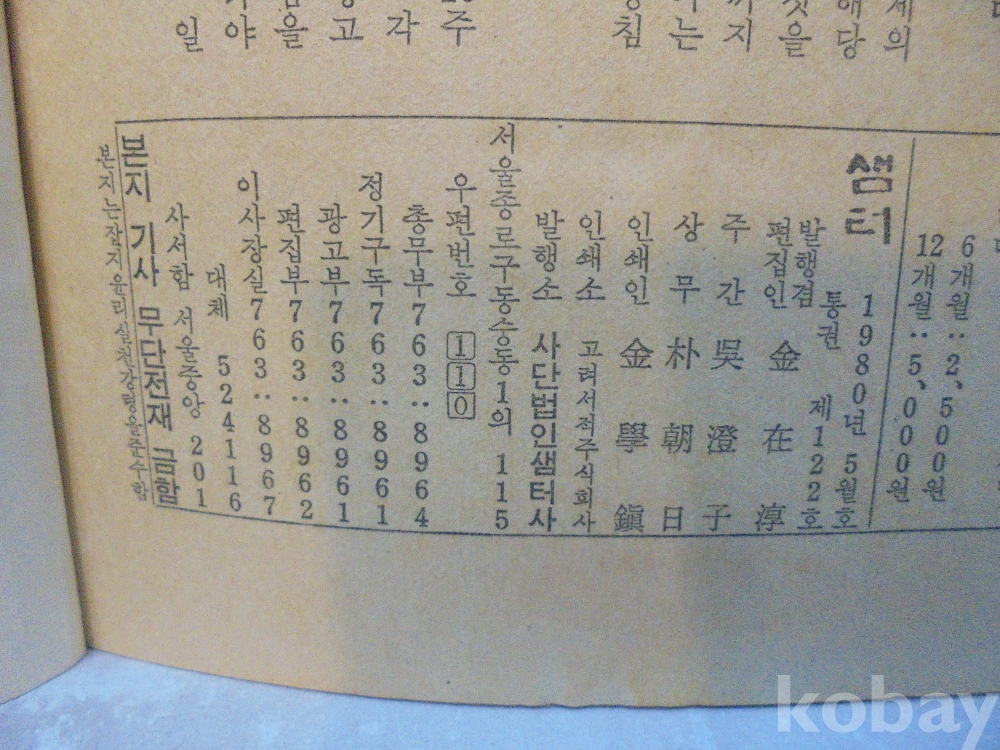 6개월:2,500원
12개월:5,000원
샘터 1980년 5월호
통권 제122호
발행겸
편집인 金在淳
주간 吳澄子
상무 朴朝日
인쇄인 金學鎭
인쇄소 고려서적주식회사
발행소 사단법인샘터사
서울종로구동숭동1의 115
우편번호 110
총무부763:8964
정기구독763:8961
광고부763:8961
편집부763:8962
이사장실763:8967
대체 524116
사서함 서울중앙 201
본지 기사 무단전재 금함
본지는잡지윤리실천강령을준수함
kobay